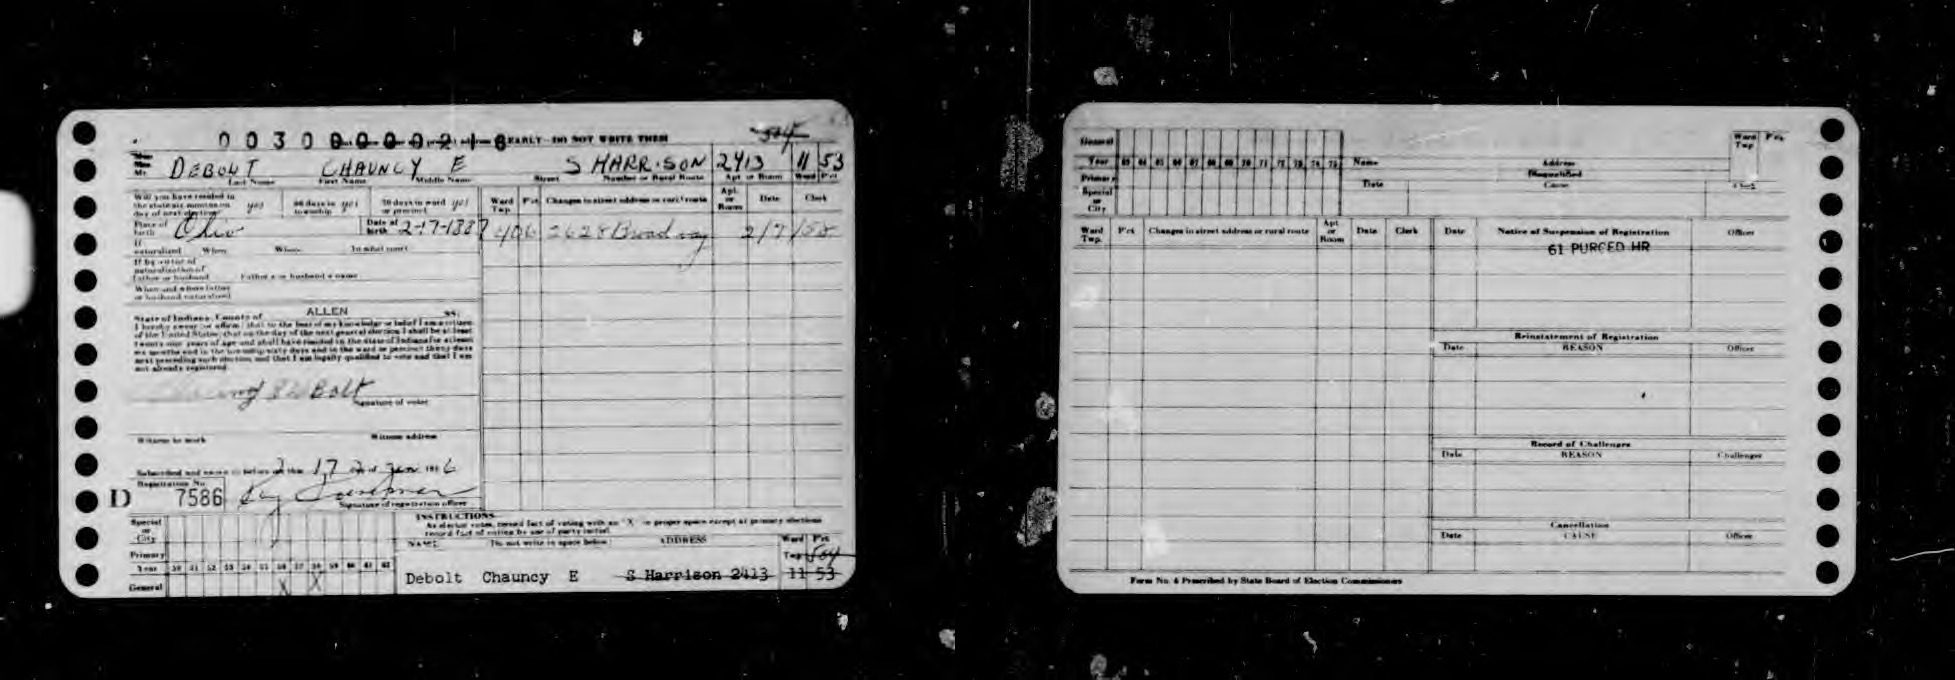 0 0 3 0 0 0 0 0 2 1 8 EARLY—DO NOT WRITE THEM
Mrs.
Mr. DEBOLT CHAUNCY E S HARRISON 2413 11 53
Last Name First Name Middle Name Street Number or Rural Route Apt or Room Ward Pct
Will you have resided in the state six months on day of next election yes 60 days in township yes 30 days in ward or precinct yes
Place of birth Ohio Date of birth 2-17-1887
If naturalized When Where In what court
If by virtue of naturalization of father or husband Father's or husband's name
When and where father or husband naturalized
State of Indiana, County of ALLEN SS:
I hereby swear (or affirm) that to the best of my knowledge or belief I am a citizen
of the United States; that on the day of the next general election I shall be at least
twenty-one years of age and shall have resided in the state of Indiana for at least
six months and in the township sixty days and in the ward or precinct thirty days
next preceding such election, and that I am legally qualified to vote and that I am
not already registered
Signature of voter
Witness to mark Witness address
Subscribed and sworn to before me this 17 day of Jan 1956
Registration No.
D 7586
Signature of registration officer
Ward Twp. Pct. Changes in street address or rural route Apt. or Room Date Clerk
406 2628 Broadway 2/7/58
Special or City
Primary
Year 50 51 52 53 54 55 56 57 58 59 60 61 62
General X X
INSTRUCTIONS
As elector votes, record fact of voting with an "X" in proper space except at primary elections
record fact of voting by use of party initial
NAME (Do not write in space below) ADDRESS Ward Twp Pct
504
Debolt Chauncy E S Harrison 2413 11 53
General
Year 63 64 65 66 67 68 69 70 71 72 73 74 75
Primary
Special or City
Name Address
Ward Twp Pct.
Disqualified
Date Cause Clerk
Ward Twp. Pct Changes in street address or rural route Apt or Room Date Clerk
Date Notice of Suspension of Registration Officer
61 PURGED HR
Reinstatement of Registration
Date REASON Officer
Record of Challenges
Date REASON Challenger
Cancellation
Date CAUSE Officer
Form No. 4 Prescribed by State Board of Election Commissioners